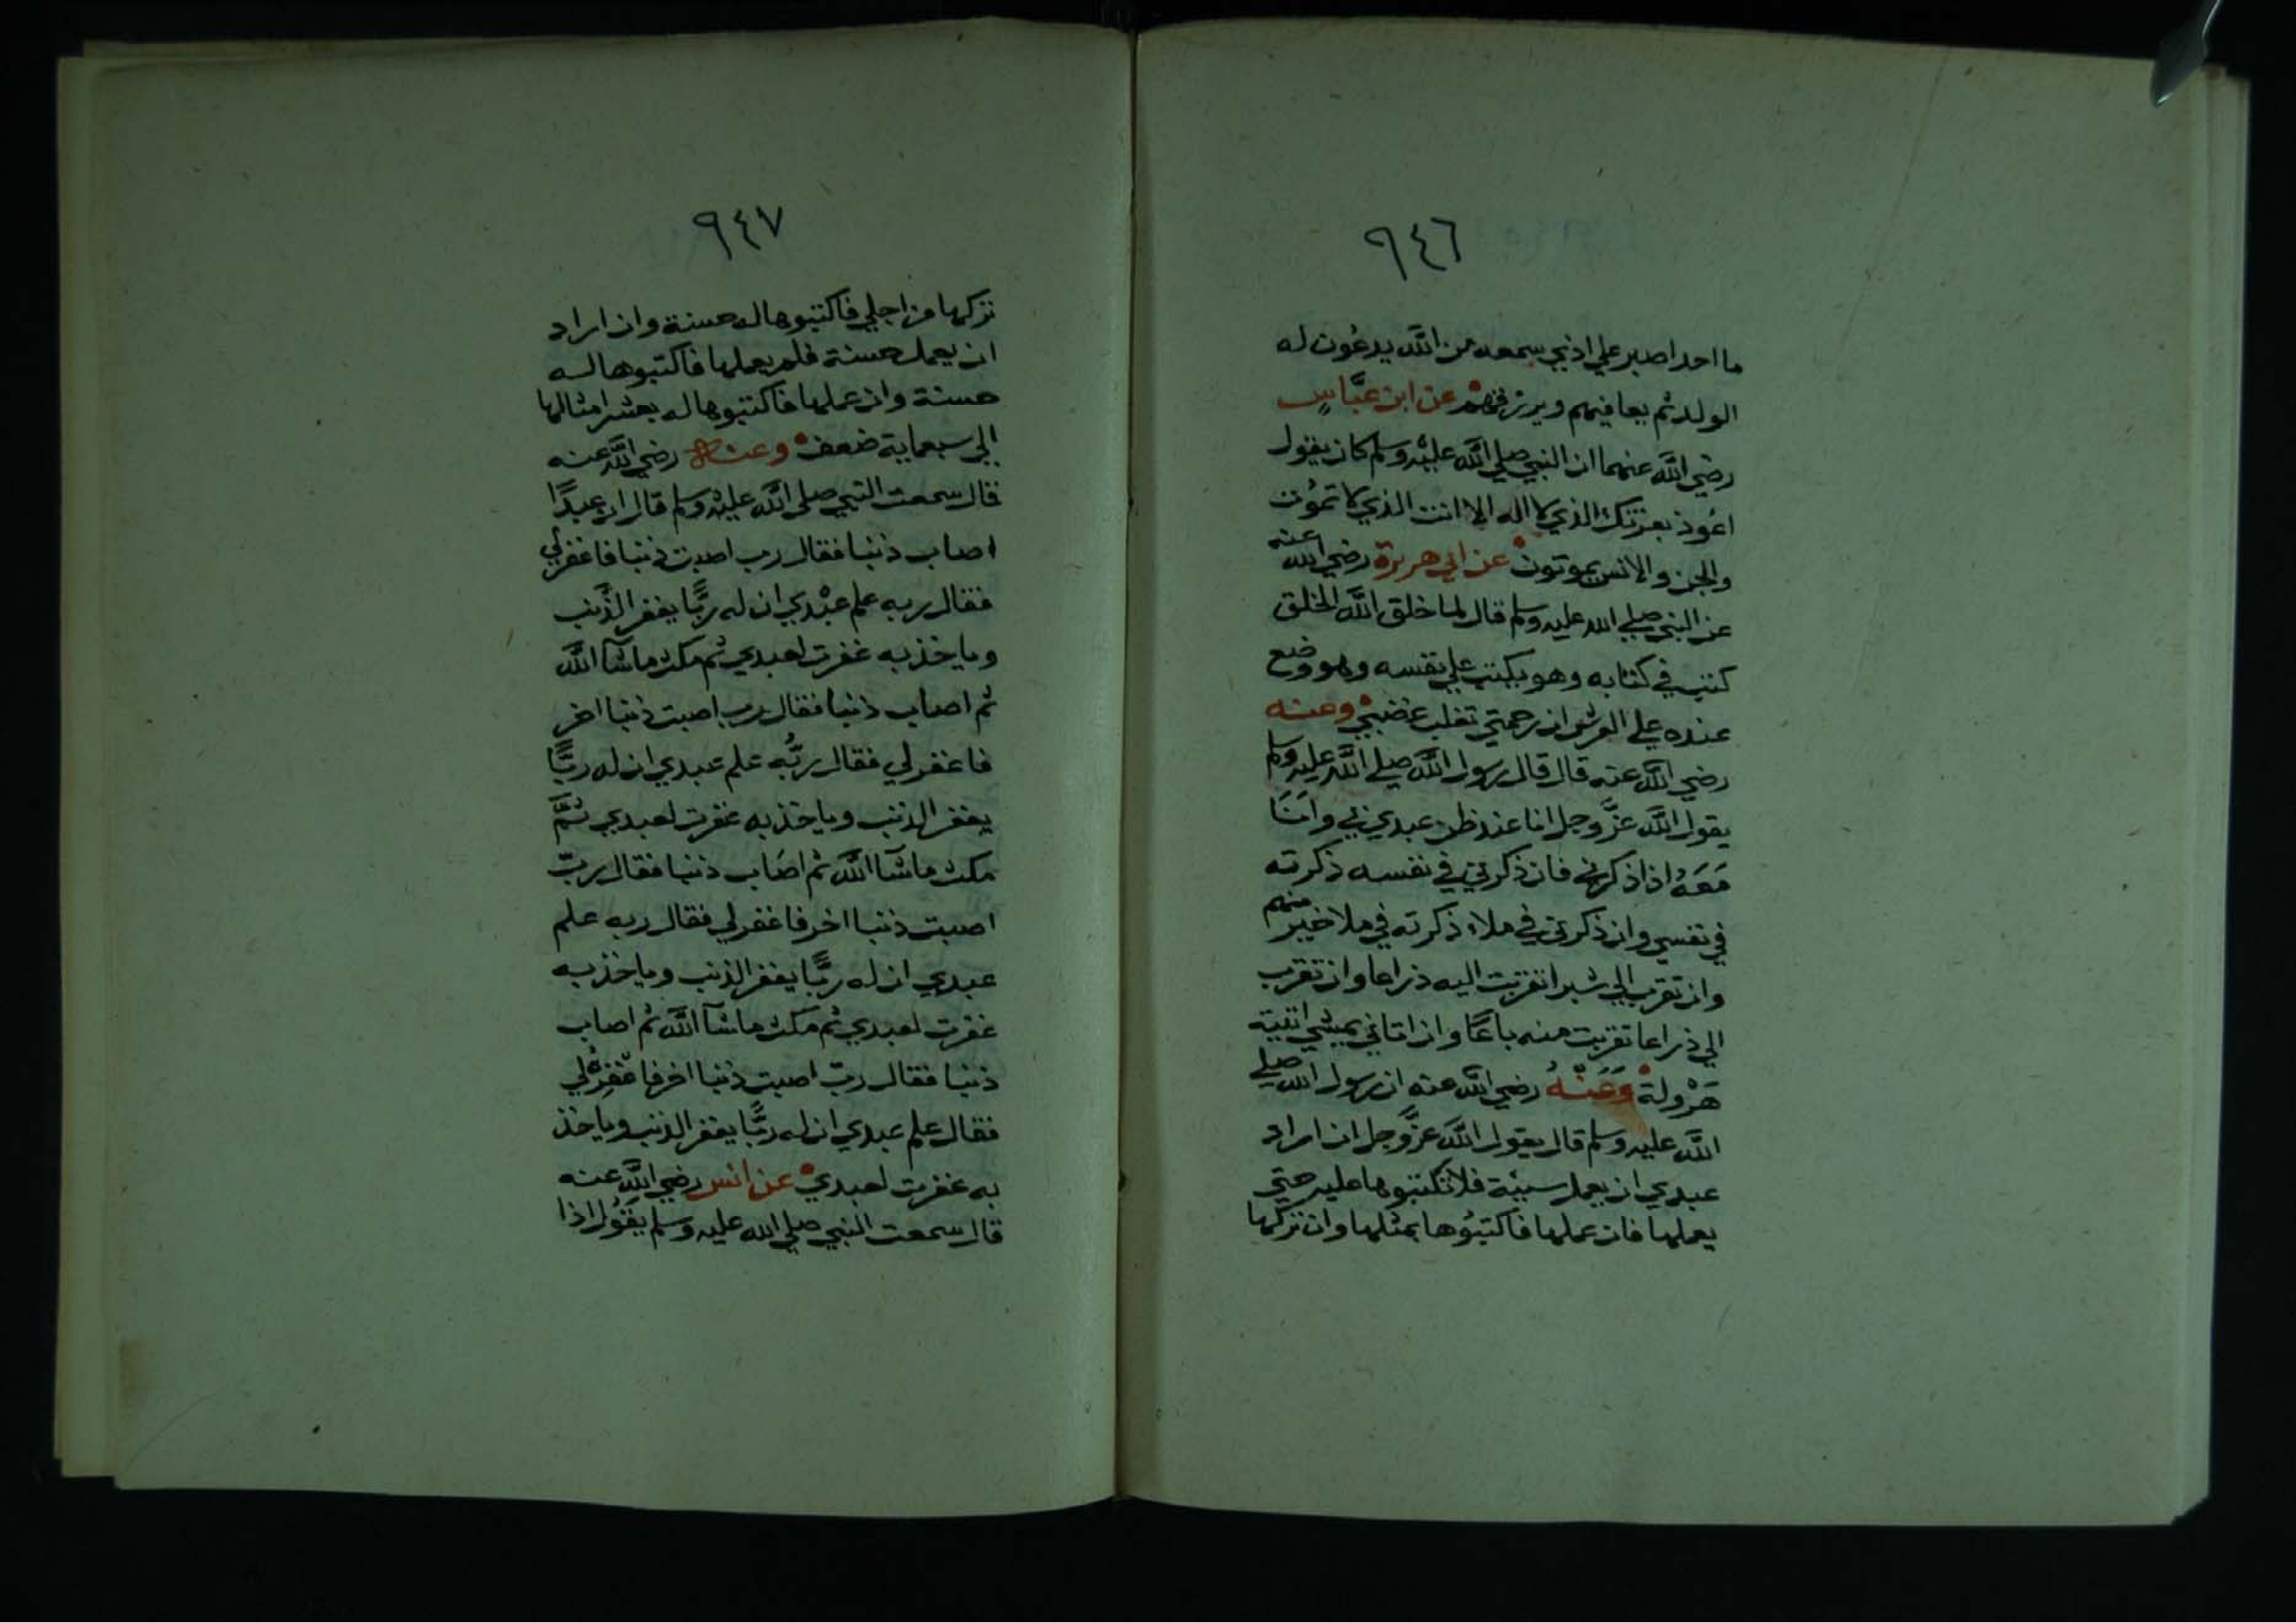 ٩٤٦
ما احد اصبر علي اذي سمعه من الله يدعون له
الولد ثم يعافيهم ويرزقهم عن ابن عبَّاسٍ
رضي الله عنهما ان النبي صلي الله عليه وسلم كان يقول
اعوذ بعزتك الذي لا اله الا انت الذي لا تموُت
والجن والانس يموتون عن ابي هريرة رضي الله عنه
عن النبي صلي الله عليه وسلم قال لما خلق الله الخلق
كتب في كتابه وهو يكتب علي نفسه وهو وضع
عنده علي العرش ان رحمتي تغلب غضبي وعنه
رضي الله عنه قال قال رسول الله صلي الله عليه وسلم
يقول الله عزَّ وجل انا عند ظن عبدي بي وانَا
مَعَهُ اذا ذكرني فان ذكرني في نفسه ذكرته
في نفسي وان ذكرني في ملاء ذكرته في ملا خير منهم
وان تقرب الي شبرا تقربت اليه ذراعا وان تقرب
الي ذراعا تقربت منه باعًا وان اتاني يمشي اتيته
هَرْولة وَعَنْهُ رضي الله عنه ان رسول الله صلي
الله عليه وسلم قال يقول الله عزَّ وجل ان اراد
عبدي ان يعمل سيئة فلا تكتبوها عليه حتي
يعملها فان عملها فاكتبُوها بمثلها وان تركها
٩٤٧
تركها من اجلي فاكتبوها له حسنة وان اراد
ان يعمل حسنة فلم يعملها فاكتبوها له
حسنة وان عملها فاكتبوها له بعشر امثالها
الي سبعماية ضعف وعنه رضي الله عنه
قال سمعت النبي صلي الله عليه وسلم قال ان عبدًا
اصاب ذنبا فقال رب اصبت ذنبا فاغفر لي
فقال ربه علم عبْدي ان له ربًّا يغفر الذَّنب
وياخذ به غفرت لعبدي ثم مكث ما شآ الله
ثم اصاب ذنبا فقال رب اصبت ذنبا اخر
فاغفر لي فقال ربُّه علم عبدي ان له ربًّا
يغفر الذنب وياخذ به غفرت لعبدي ثمَّ
مكث ما شآ الله ثم اصَاب ذنبا فقال ربّ
اصبت ذنبا اخر فاغفر لي فقال ربه علم
عبدي ان له ربًّا يغفر الذنب وياخذ به
غفرت لعبدي ثم مكث ما شآ الله ثم اصاب
ذنبا فقال ربّ اصبت ذنبا اخر فاغْفرْ لي
فقال علم عبدي ان له ربًّا يغفر الذنب وياخذ
به غفرت لعبدي عن انس رضي الله عنه
قال سمعت النبي صلي الله عليه وسلم يقُول اذا